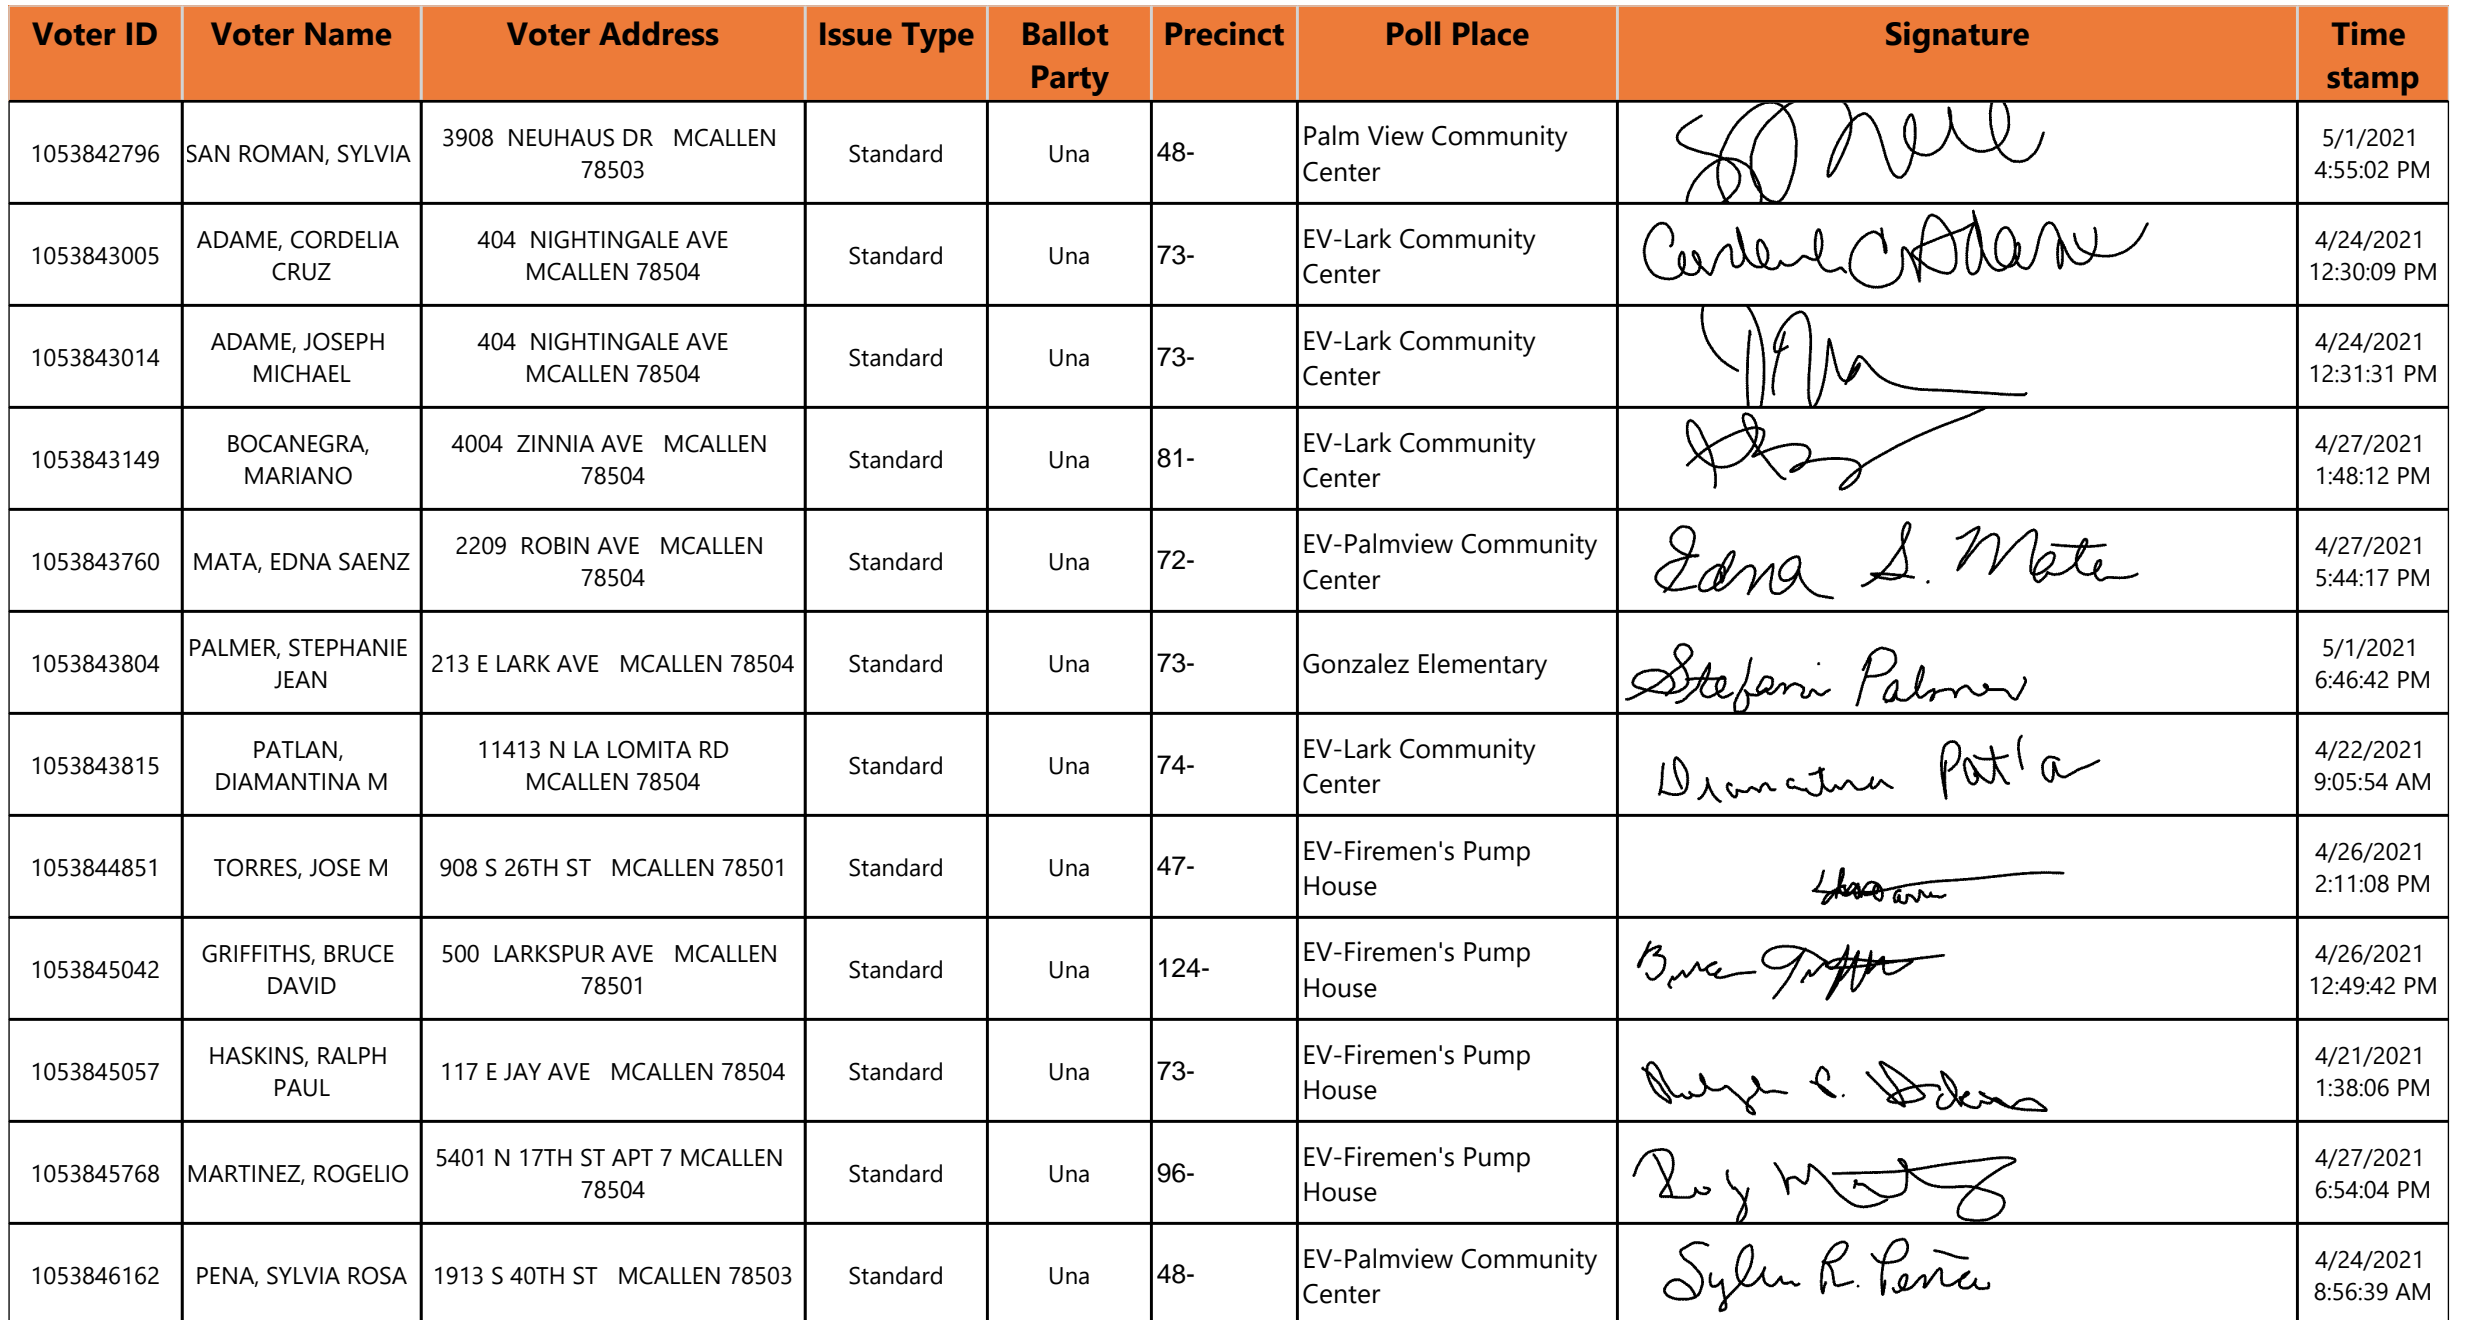 Voter ID Voter Name Voter Address Issue Type Ballot Party Precinct Poll Place Signature Time stamp
1053842796 SAN ROMAN, SYLVIA 3908 NEUHAUS DR MCALLEN 78503 Standard Una 48- Palm View Community Center 5/1/2021 4:55:02 PM
1053843005 ADAME, CORDELIA CRUZ 404 NIGHTINGALE AVE MCALLEN 78504 Standard Una 73- EV-Lark Community Center 4/24/2021 12:30:09 PM
1053843014 ADAME, JOSEPH MICHAEL 404 NIGHTINGALE AVE MCALLEN 78504 Standard Una 73- EV-Lark Community Center 4/24/2021 12:31:31 PM
1053843149 BOCANEGRA, MARIANO 4004 ZINNIA AVE MCALLEN 78504 Standard Una 81- EV-Lark Community Center 4/27/2021 1:48:12 PM
1053843760 MATA, EDNA SAENZ 2209 ROBIN AVE MCALLEN 78504 Standard Una 72- EV-Palmview Community Center Edna S. Mata 4/27/2021 5:44:17 PM
1053843804 PALMER, STEPHANIE JEAN 213 E LARK AVE MCALLEN 78504 Standard Una 73- Gonzalez Elementary Stefani Palmer 5/1/2021 6:46:42 PM
1053843815 PATLAN, DIAMANTINA M 11413 N LA LOMITA RD MCALLEN 78504 Standard Una 74- EV-Lark Community Center 4/22/2021 9:05:54 AM
1053844851 TORRES, JOSE M 908 S 26TH ST MCALLEN 78501 Standard Una 47- EV-Firemen's Pump House 4/26/2021 2:11:08 PM
1053845042 GRIFFITHS, BRUCE DAVID 500 LARKSPUR AVE MCALLEN 78501 Standard Una 124- EV-Firemen's Pump House Bruce 4/26/2021 12:49:42 PM
1053845057 HASKINS, RALPH PAUL 117 E JAY AVE MCALLEN 78504 Standard Una 73- EV-Firemen's Pump House 4/21/2021 1:38:06 PM
1053845768 MARTINEZ, ROGELIO 5401 N 17TH ST APT 7 MCALLEN 78504 Standard Una 96- EV-Firemen's Pump House Roy 4/27/2021 6:54:04 PM
1053846162 PENA, SYLVIA ROSA 1913 S 40TH ST MCALLEN 78503 Standard Una 48- EV-Palmview Community Center Sylvia R. Peña 4/24/2021 8:56:39 AM